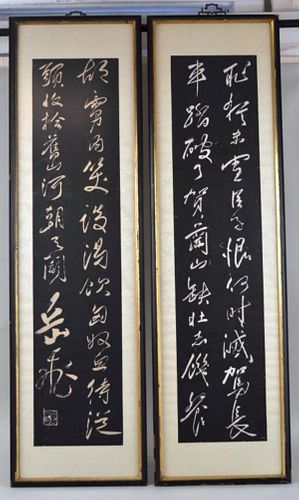 耻猶未雪臣子恨何时滅駕長
車踏破了賀蘭山缺壮志饑餐
胡虜肉笑談渴飲匈奴血待從
頭收拾舊山河朝天闕
岳飛